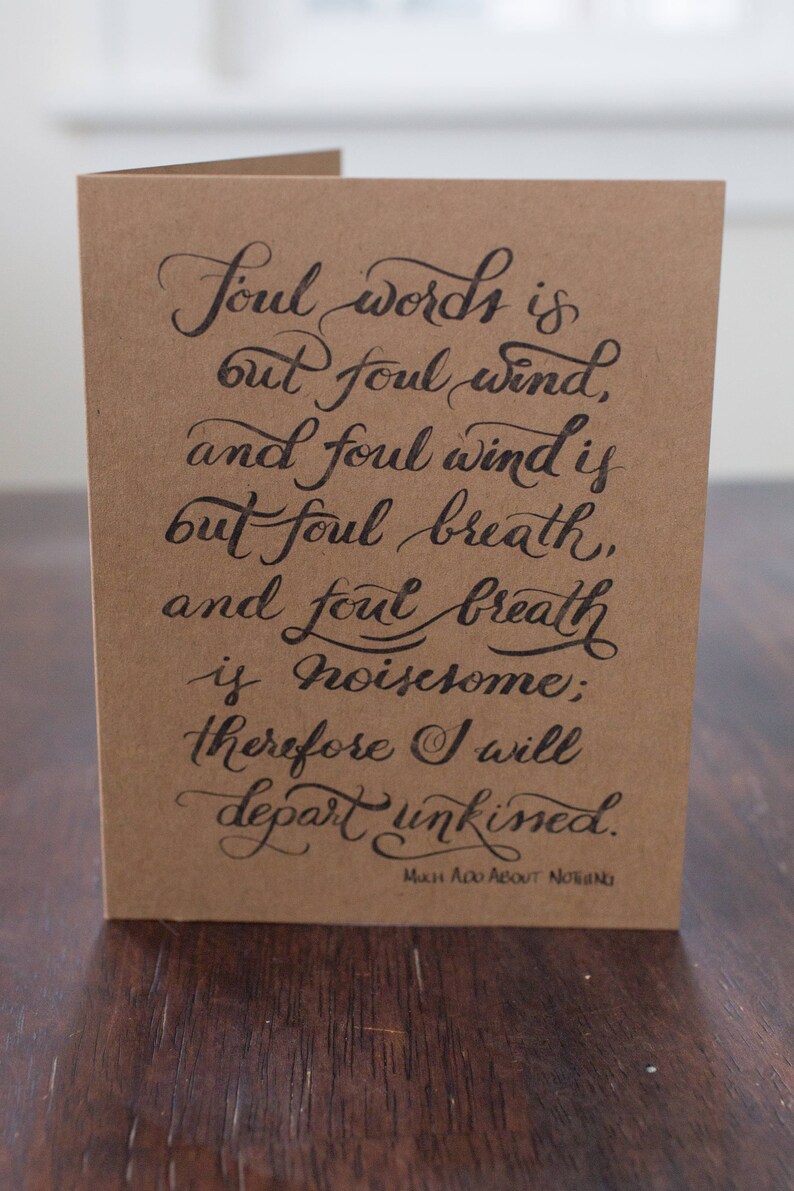 Foul words is
but foul wind,
and foul wind is
but foul breath,
and foul breath
is noisesome;
therefore I will
depart unkissed.
MUCH ADO ABOUT NOTHING